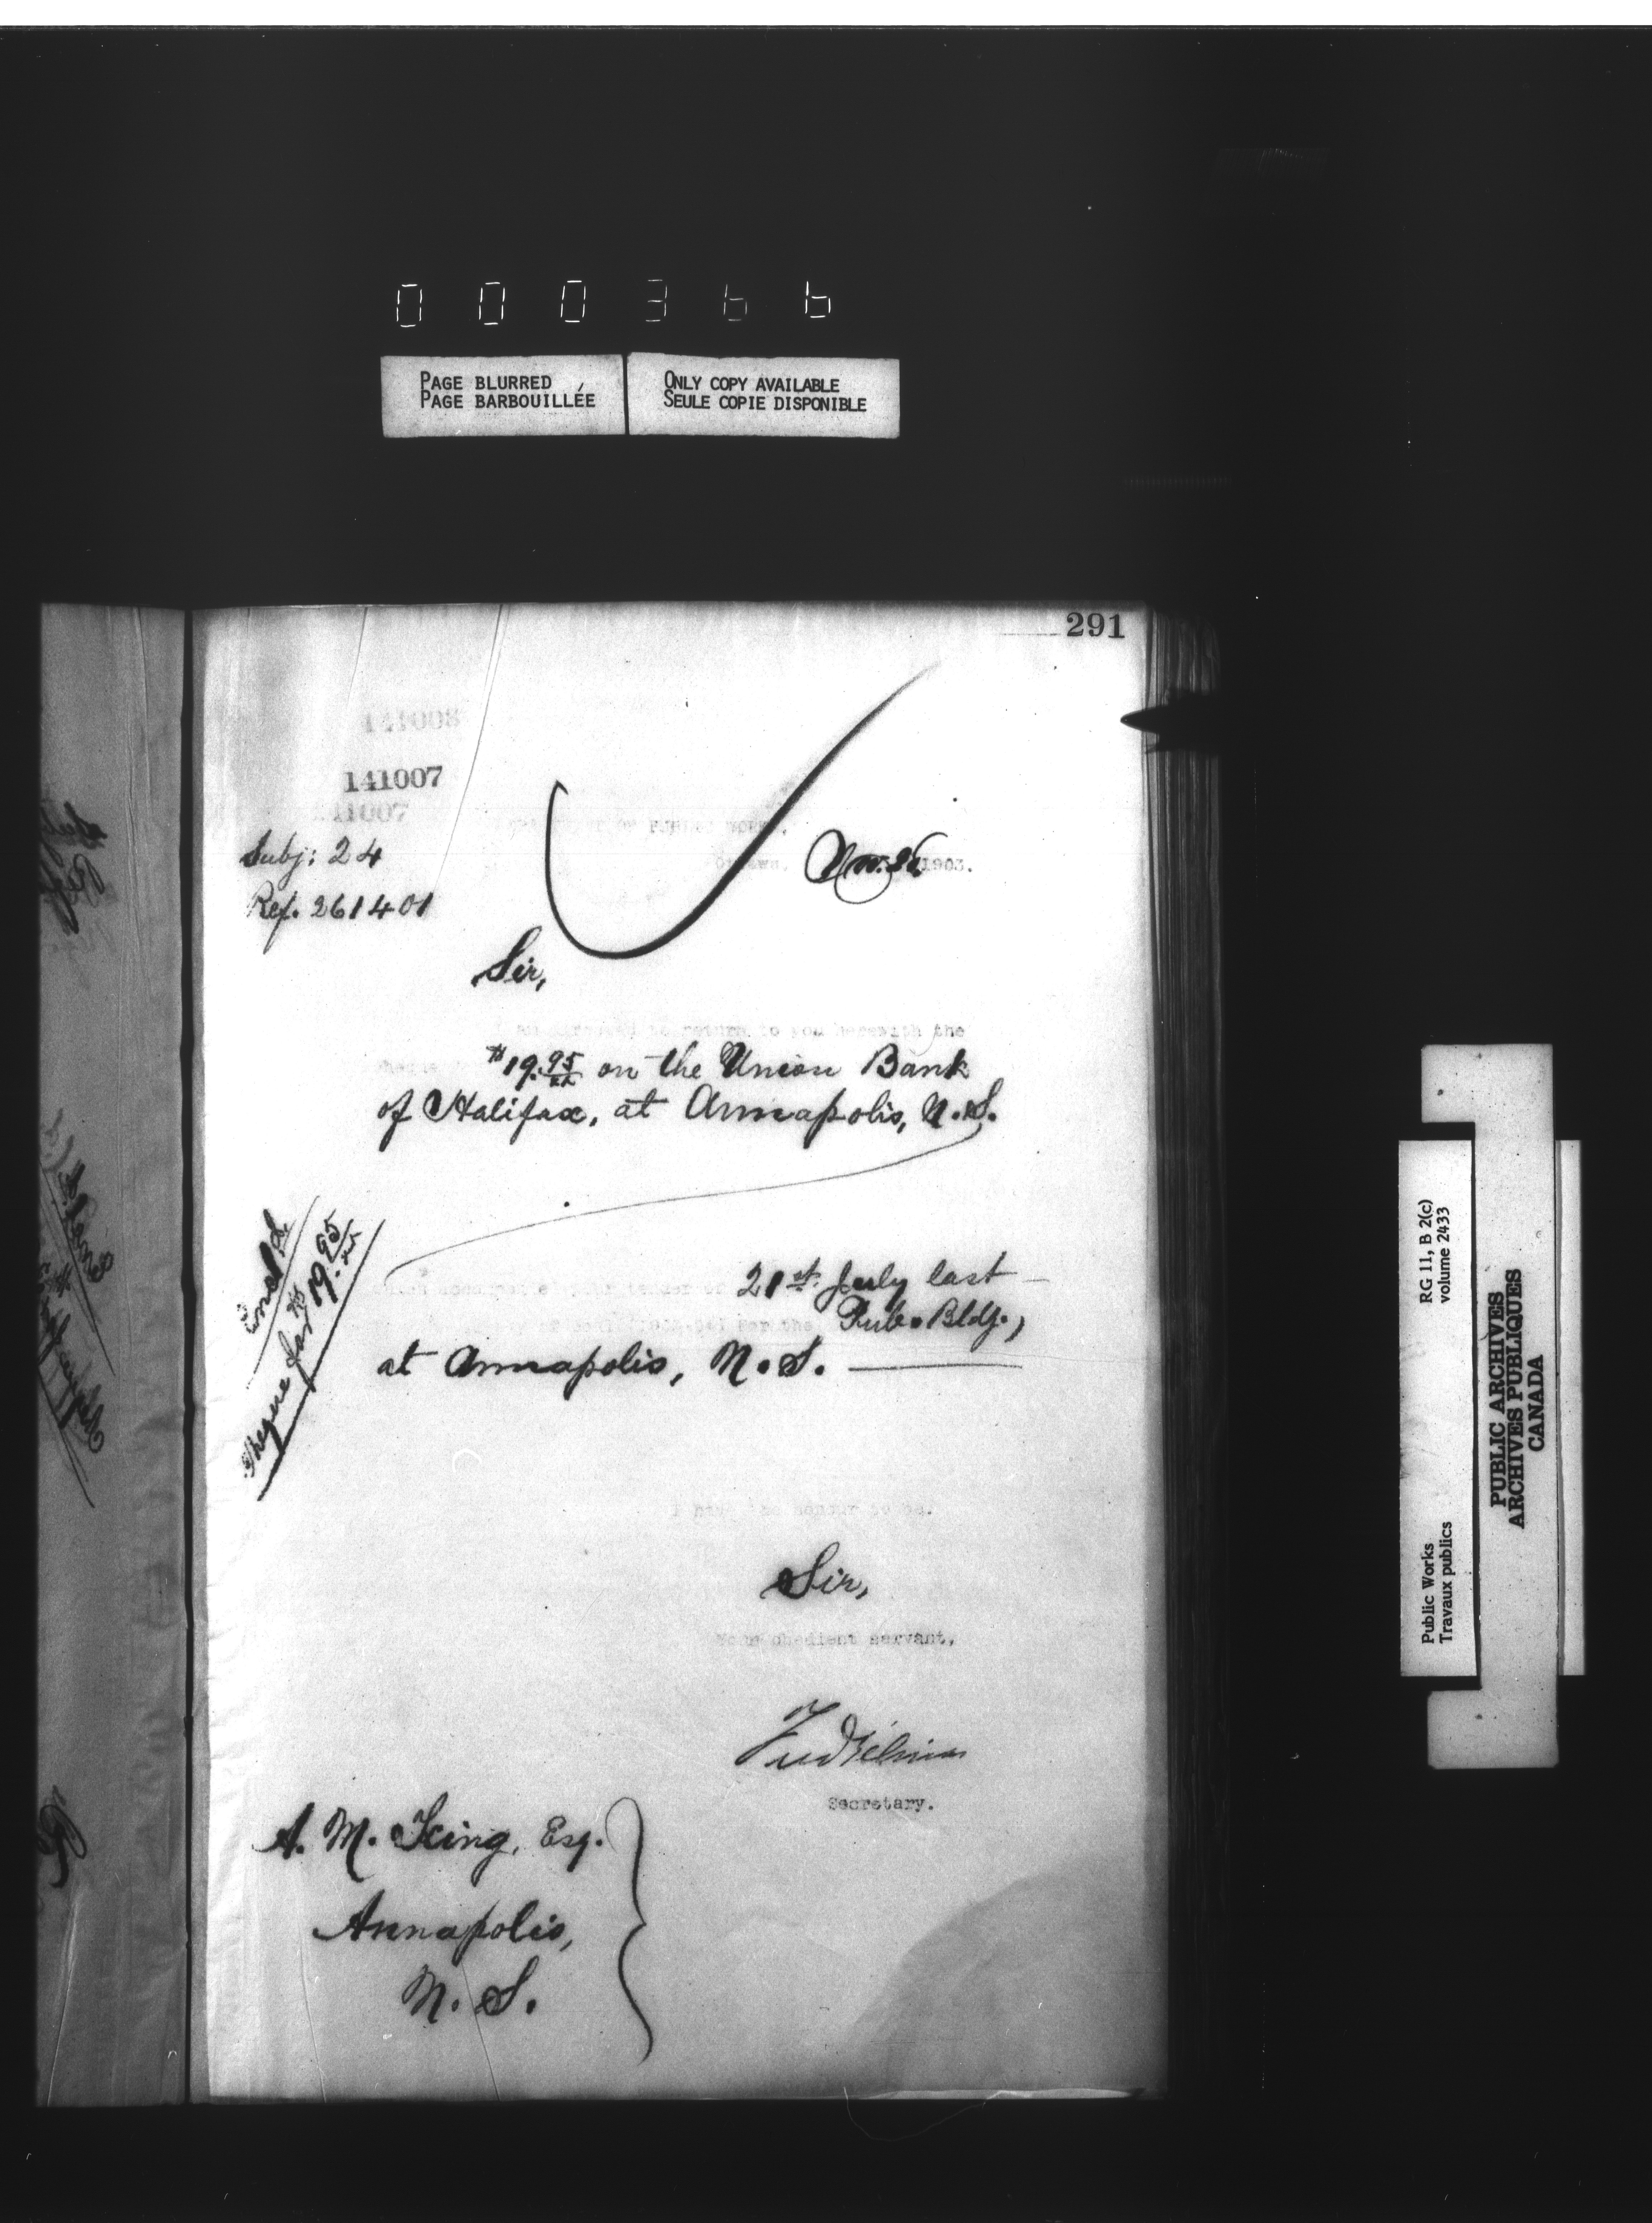 000366
PAGE BLURRED
PAGE BARBOUILLÉE
ONLY COPY AVAILABLE
SEULE COPIE DISPONIBLE
291
141008
141007
141007
Subj: 24
Ref. 261401
OF PUBLIC WORKS.
Ottawa, Nov. 26 1903.
Sir,
I am directed to return to you herewith the
cheque
$19.95 on the Union Bank
of Halifax, at Annapolis, N.S.
Encl.
Cheque for $19.95
which accompanied your tender of 21st July last
for the Pub. Bldg.,
at Annapolis, N.S.
I have the honour to be.
Sir,
Your obedient servant,
Secretary.
A. M. King, Esq.
Annapolis,
N. S.
RG 11, B 2(c)
volume 2433
Public Works
Travaux publics
PUBLIC ARCHIVES
ARCHIVES PUBLIQUES
CANADA